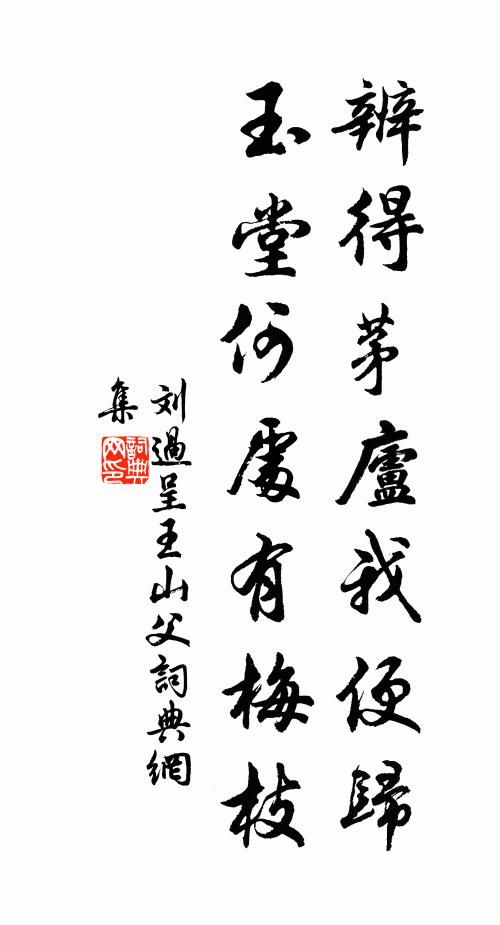 辨得茅廬我便歸
玉堂何處有梅枝
刘過呈王山父詞典網
集
詞典网印